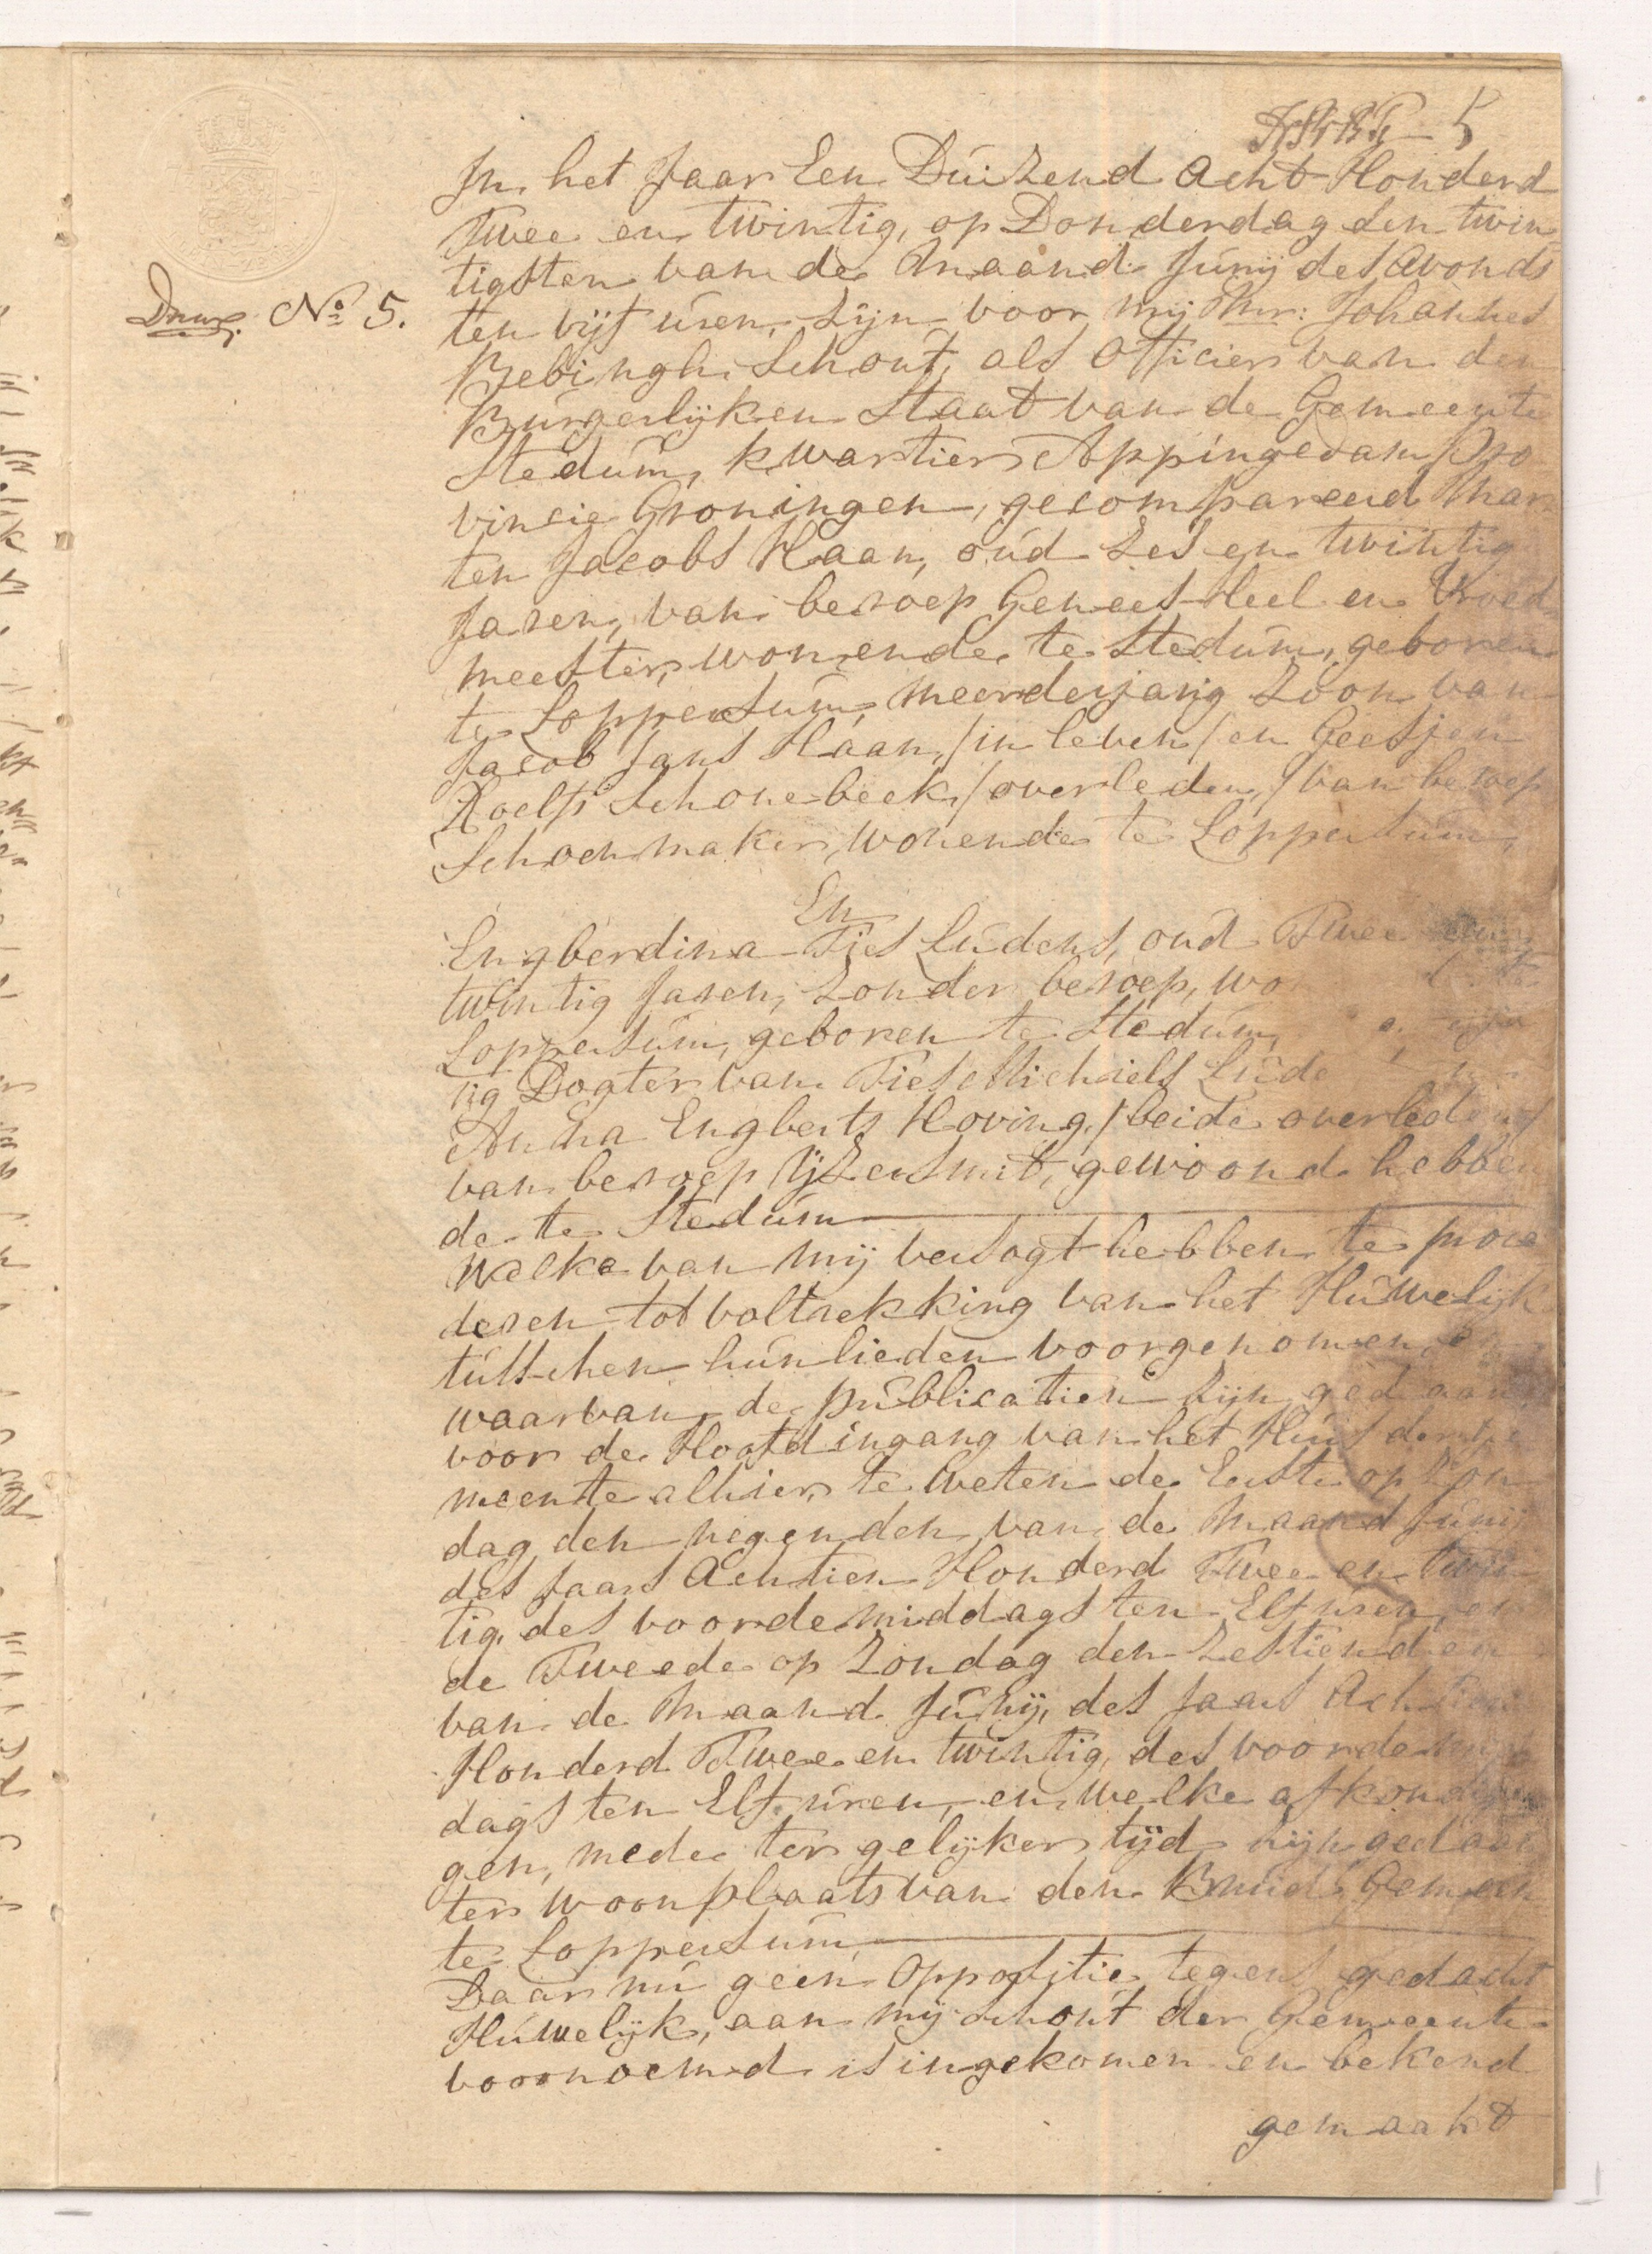 5
In het Jaar Een Duizend Acht Honderd
Twee en twintig, op Donderdag den twin
tigsten van de Maand Junij des Avonds
No 5. ten vijf uren, zijn voor mij Mr: Johannes
Bebingh Schout, als Officier van den
Burgerlijken Staat van de Gemeente
Stedum, kwartier Appingedam, Pro
vincie Groningen, gecompareerd Mar
ten Jacobs Haan, oud zes en twintig
Jaren, van beroep Genees-Heel en Vroed
meester, wonende te Stedum, geboren
te Loppersum, meerderjarig Zoon van
Jacob Jans Haan, /in leven/ en Geesjen
Roelfs Schonebeek, /overleden,/ van beroep
Schoenmaker, wonende te Loppersum,
En
Engberdina Ties Ludens, oud Twee en
twintig Jaren, zonder beroep, wo
Loppersum, geboren te Stedum,
rig Dogter van Ties Michiels Lude
Anna Engberts Hoving, /beide overleden/
van beroep IJzersmit, gewoond hebben
de te Stedum
Welke van mij versogt hebben te proce
deren tot voltrekking van het Huwelijk
tusschen hunlieden voorgenomen, en
waarvan de publicatien zijn gedaan,
voor de Hoofdingang van het Huis der Ge
meente alhier, te weten de Eerste op Zon
dag den negenden van de Maand Junij
des Jaars Achtien Honderd Twee en twin
tig, des voordemiddags ten Elf uren, en
de Tweede op Zondag den Zestienden
van de Maand Junij, des Jaars Achtien
Honderd Twee en twintig, des voordemid
dags ten Elf uren, en welke afkondigin
gen, mede ter gelijker tijd zijn gedaan
ter woonplaats van den Bruid, Gemeen
te Loppersum,
Daar nu geen Oppositie tegens gedacht
Huwelijk, aan mij Schout der Gemeente
voornoemd is ingekomen en bekend
gemaakt